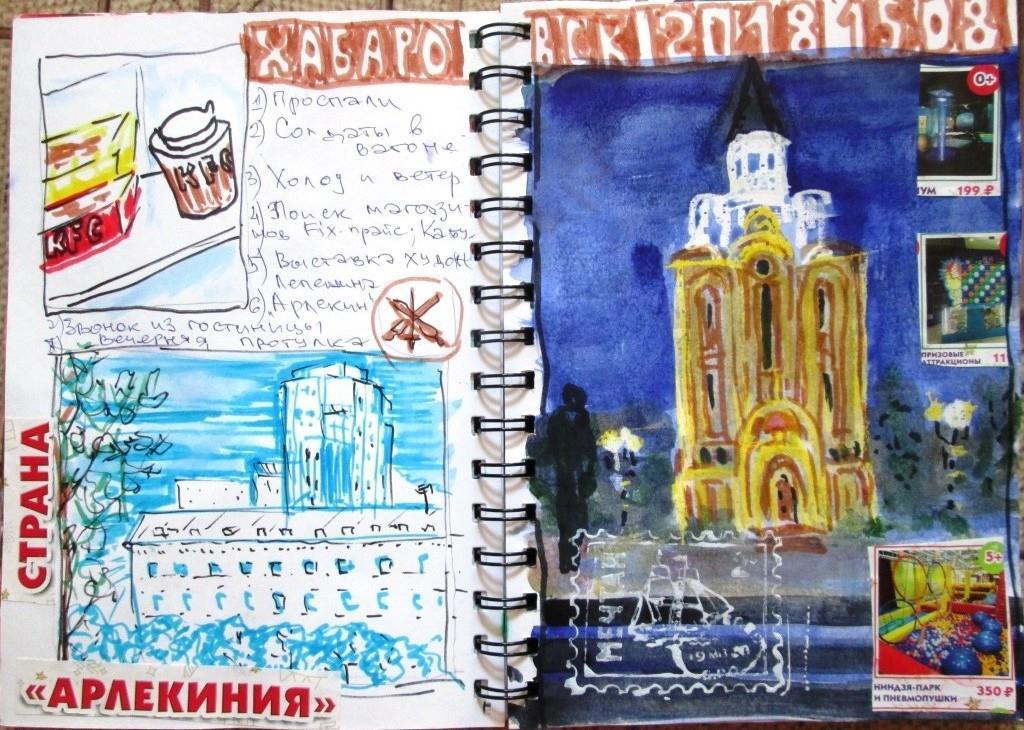 ХАБАРО
ВСК 2018 15.08
KFC
KFC
1) Проспали
2) Солдаты в
вагоне
3) Холод и ветер
4) Поиск магази-
нов Fix-прайс,
5) Выставка худож
6) Арлекин
7) Звонок из гостиницы
8) вечерняя прогулка
СТРАНА
«АРЛЕКИНИЯ»
0+
УМ 199 ₽
ПРИЗОВЫЕ
АТТРАКЦИОНЫ 11
5+
НИНДЗЯ-ПАРК
И ПНЕВМОПУШКИ 350 ₽
МЕЧТАЙ